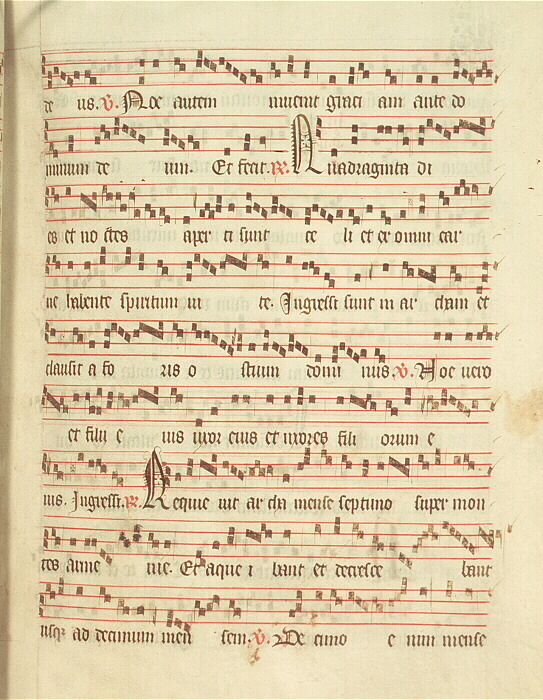 de us. V. Noe autem invenit graci am ante do
minum de um. Et fecit. R. Quadraginta di
es et no ctes aper ti sunt ce li et ex omni car
ne habente spiritum vi te. Ingressi sunt in ar cham et
clausit a fo ris o stium domi nus. V. Noe vero
et filii e ius uxor eius et uxores filii orum e
ius. Ingressi. R. Requie vit ar cha mense septimo super mon
tes arme nie. Et aque i bant et decresce bant
usque ad decimum men sem. V. De cimo e nim mense